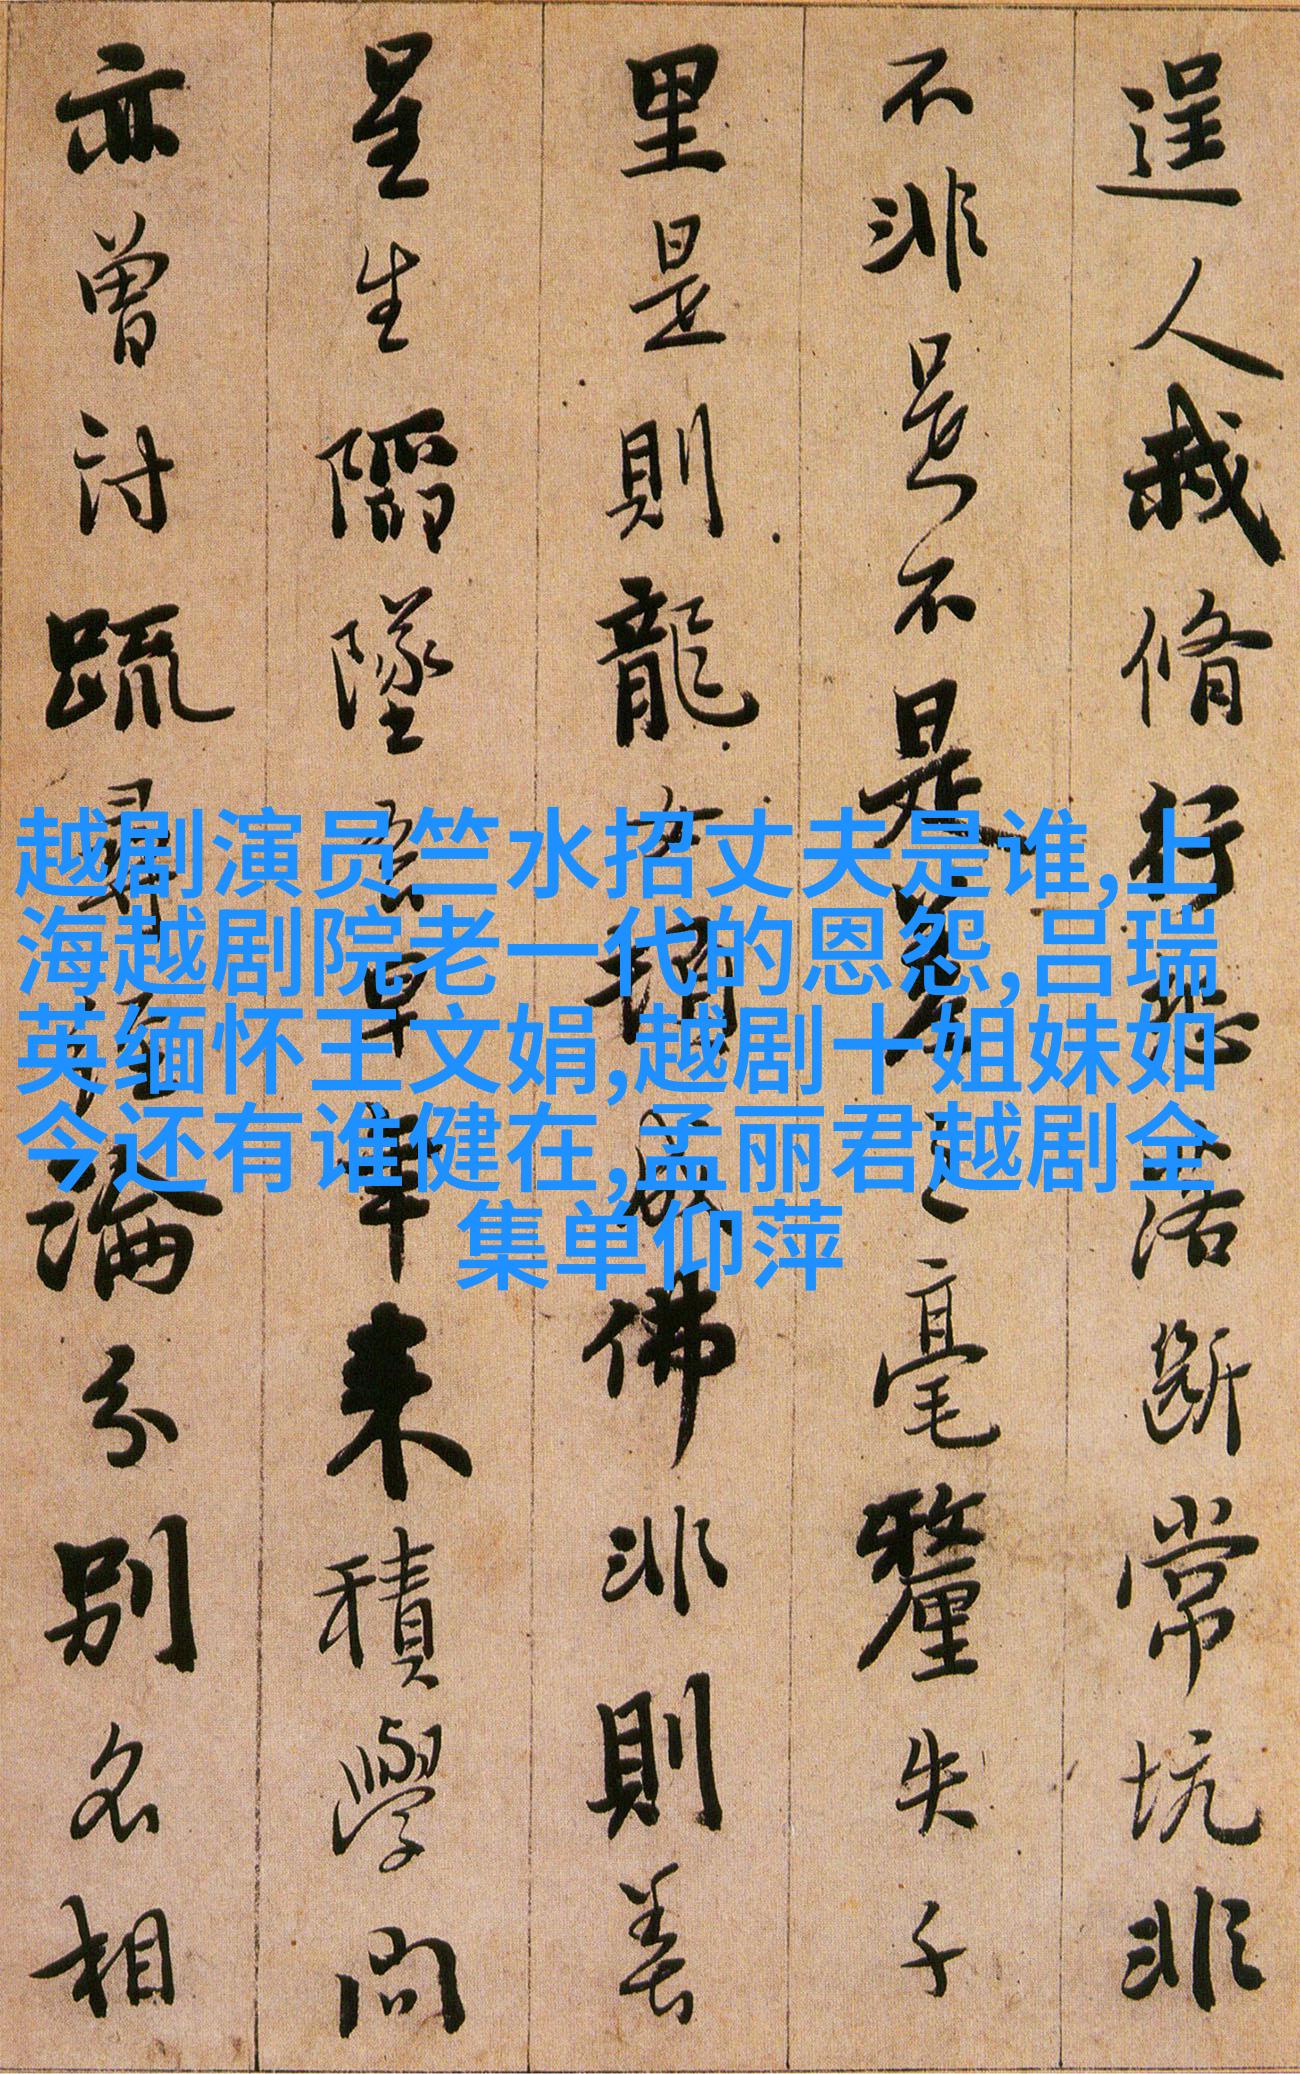 逞人我脩行恐落斷常坑非
不非是不是差之毫釐失千
里是則龍女頓成佛非則善
星生陷墜吾早年来積學問
亦曾討疏尋經論分別名相
越剧演员竺水招丈夫是谁,上
海越剧院老一代的恩怨,吕瑞
英缅怀王文娟,越剧十姐妹如
今还有谁健在,孟丽君越剧全
集单仰萍